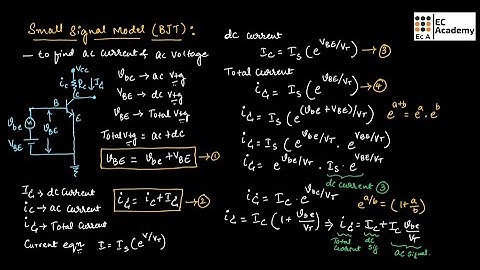 Small Signal Model (BJT):
- to find ac current & ac voltage
VCC
iC RC IC
C
B
E
vbe
vBE
VBE
vbe → ac vtg
VBE → dc vtg
vBE → Total vtg
Total vtg = ac + dc
vBE = vbe + VBE → ①
IC → dc current
ic → ac current
iC → Total current
iC = ic + IC → ②
Current eqn I = IS (e^V/VT)
dc current
IC = IS (e^VBE/VT) → ③
Total current
iC = IS (e^vBE/VT) → ④
iC = IS (e^(vbe + VBE)/VT) e^a+b = e^a . e^b
iC = IS (e^vbe/VT . e^VBE/VT)
iC = e^vbe/VT . IS . e^VBE/VT
dc current ③
iC = IC . e^vbe/VT e^a/b = (1 + a/b)
iC = IC (1 + vbe/VT) ⇒ iC = IC + IC vbe/VT
Total current dc sig ac signal
EC Academy
EC A